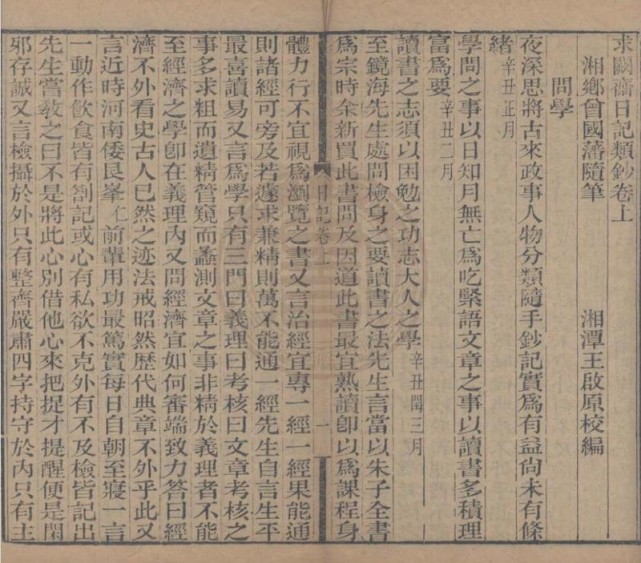 求闕齋日記類鈔卷上
湘鄉曾國藩隨筆　湘潭王啟原校編
問學
夜深思將古來政事人物分類隨手鈔記實爲有益尚未有條
緒辛丑正月
學問之事以日知月無亡爲吃緊語文章之事以讀書多積理
富爲要辛丑二月
讀書之志須以困勉之功志大人之學辛丑閏三月
至鏡海先生處問檢身之要讀書之法先生言當以朱子全書
爲宗時余新買此書問及因道此書最宜熟讀卽以爲課程身
體力行不宜視爲瀏覽之書又言治經宜專一經一經果能通
則諸經可旁及若遽求兼精則萬不能通一經先生自言生平
最喜讀易又言爲學只有三門曰義理曰考核曰文章考核之
事多求粗而遺精管窺而蠡測文章之事非精於義理者不能
至經濟之學卽在義理內又問經濟宜如何審端致力答曰經
濟不外看史古人已然之迹法戒昭然歷代典章不外乎此又
言近時河南倭艮峯仁前輩用功最篤實每日自朝至寢一言
一動作飲食皆有劄記或心有私欲不克外有不及檢皆記出
先生嘗教之曰不是將此心別借他心來把捉才提醒便是閑
邪存誠又言檢攝於外只有整齊嚴肅四字持守於內只有主
日記卷上
一